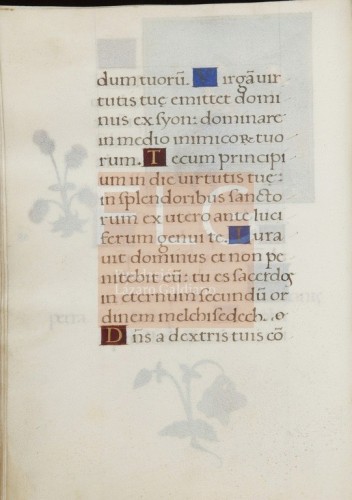 dum tuorū. Virgā vir
tutis tuę emittet domi
nus ex syon: dominare
in medio inimicoꝝ tuo
rum. Tecum principi
um in die virtutis tuę:
in splendoribus sancto
rum ex utero ante luci
ferum genui te. Iura
uit dominus et non pe
nitebit eū: tu es sacerdos
in eternum secundū or
dinem melchisedech.
Dn̄s a dextris tuis cō